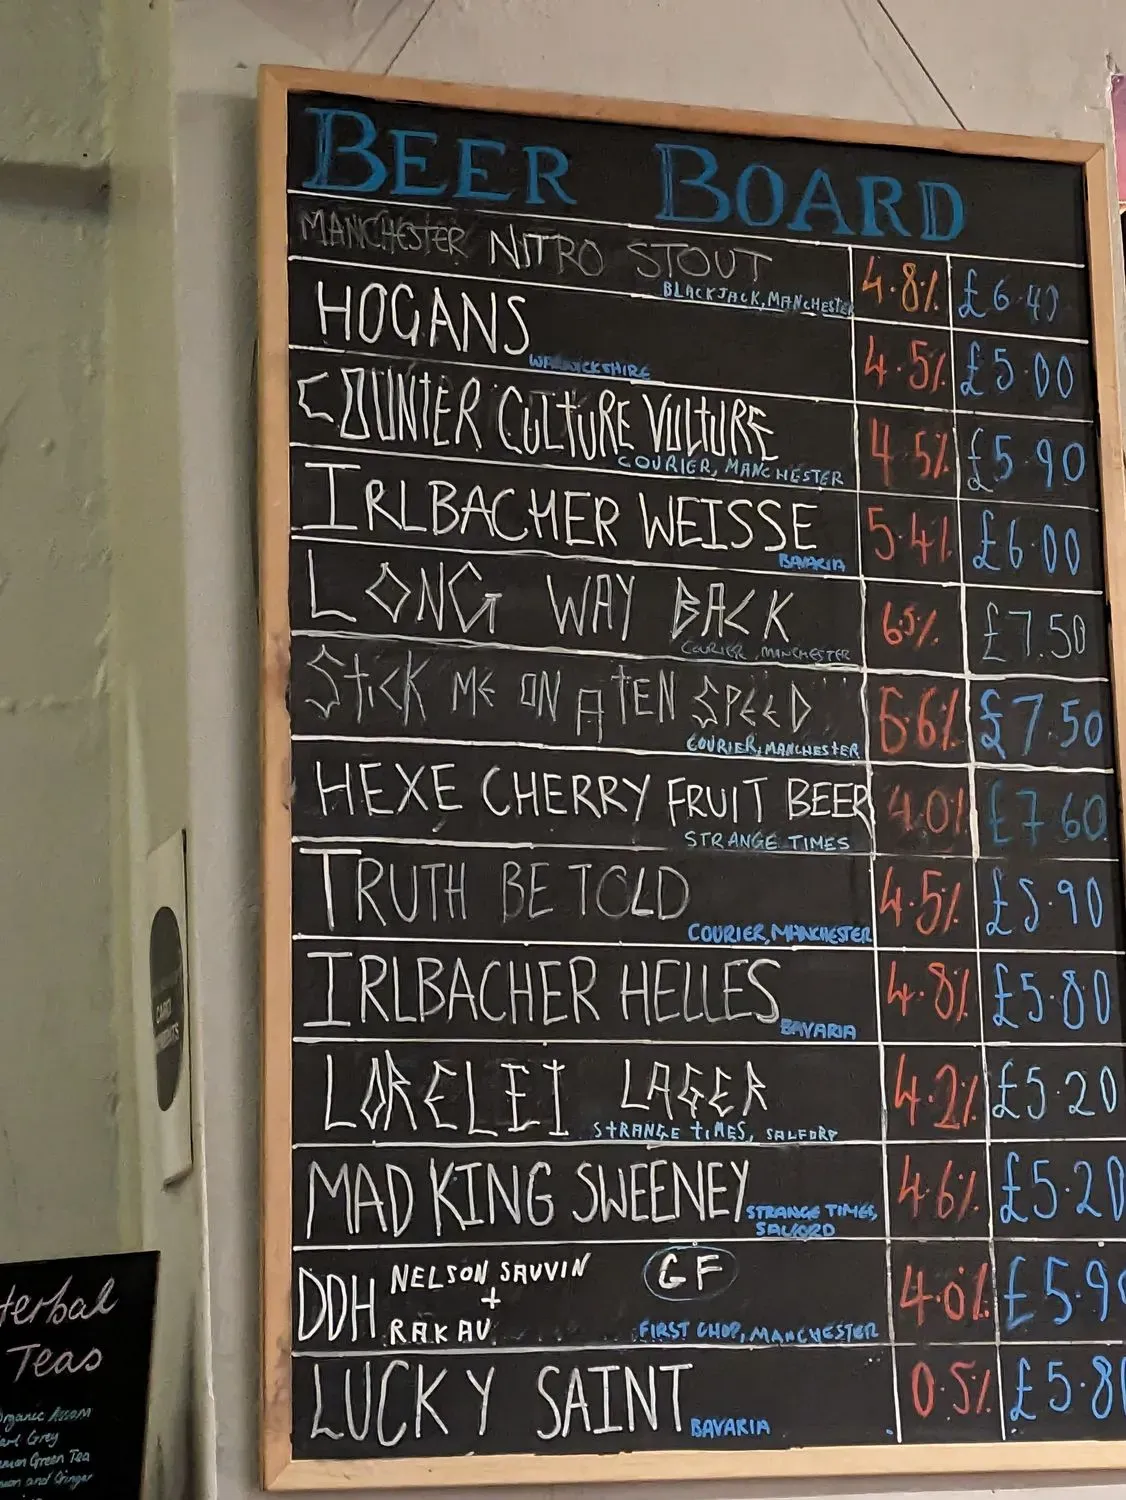 BEER BOARD
MANCHESTER NITRO STOUT 4.8% £6.40
BLACKJACK, MANCHESTER
HOGANS 4.5% £5.00
WARWICKSHIRE
COUNTER CULTURE VULTURE 4.5% £5.90
COURIER, MANCHESTER
IRLBACHER WEISSE 5.4% £6.00
BAVARIA
LONG WAY BACK 6.5% £7.50
COURIER, MANCHESTER
STICK ME ON A TEN SPEED 6.6% £7.50
COURIER, MANCHESTER
HEXE CHERRY FRUIT BEER 4.0% £7.60
STRANGE TIMES
TRUTH BE TOLD 4.5% £5.90
COURIER, MANCHESTER
IRLBACHER HELLES 4.8% £5.80
BAVARIA
LORELEI LAGER 4.2% £5.20
STRANGE TIMES, SALFORD
MAD KING SWEENEY 4.6% £5.20
STRANGE TIMES,
SALFORD
DDH NELSON SAUVIN GF 4.0% £5.90
+
RAKAU
FIRST CHOP, MANCHESTER
LUCKY SAINT 0.5% £5.80
BAVARIA
CARD
Herbal
Teas
Organic Assam
Earl Grey
Lemon Green Tea
Lemon and Ginger